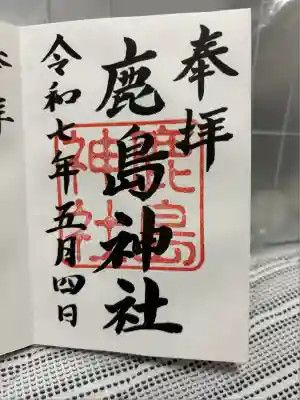 奉拝
鹿島神社
鹿島神社
令和七年五月四日
拝